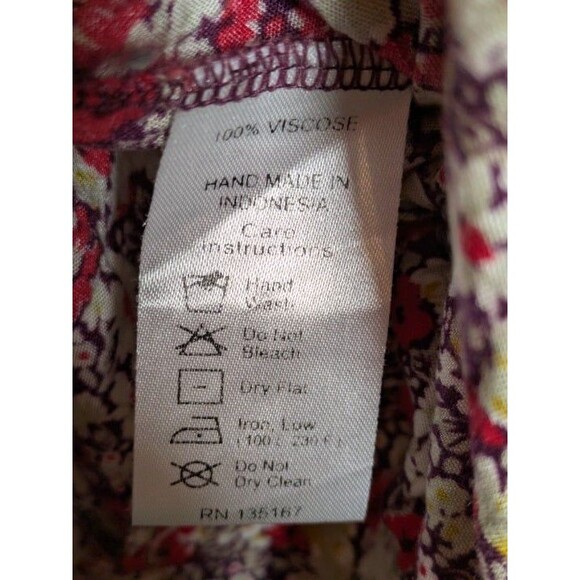 100% VISCOSE
HAND MADE IN
INDONESIA
Care
instructions
Hand
Wash
Do Not
Bleach
Dry Flat
Iron, Low
(100 c 230 F)
Do Not
Dry Clean
RN 135167